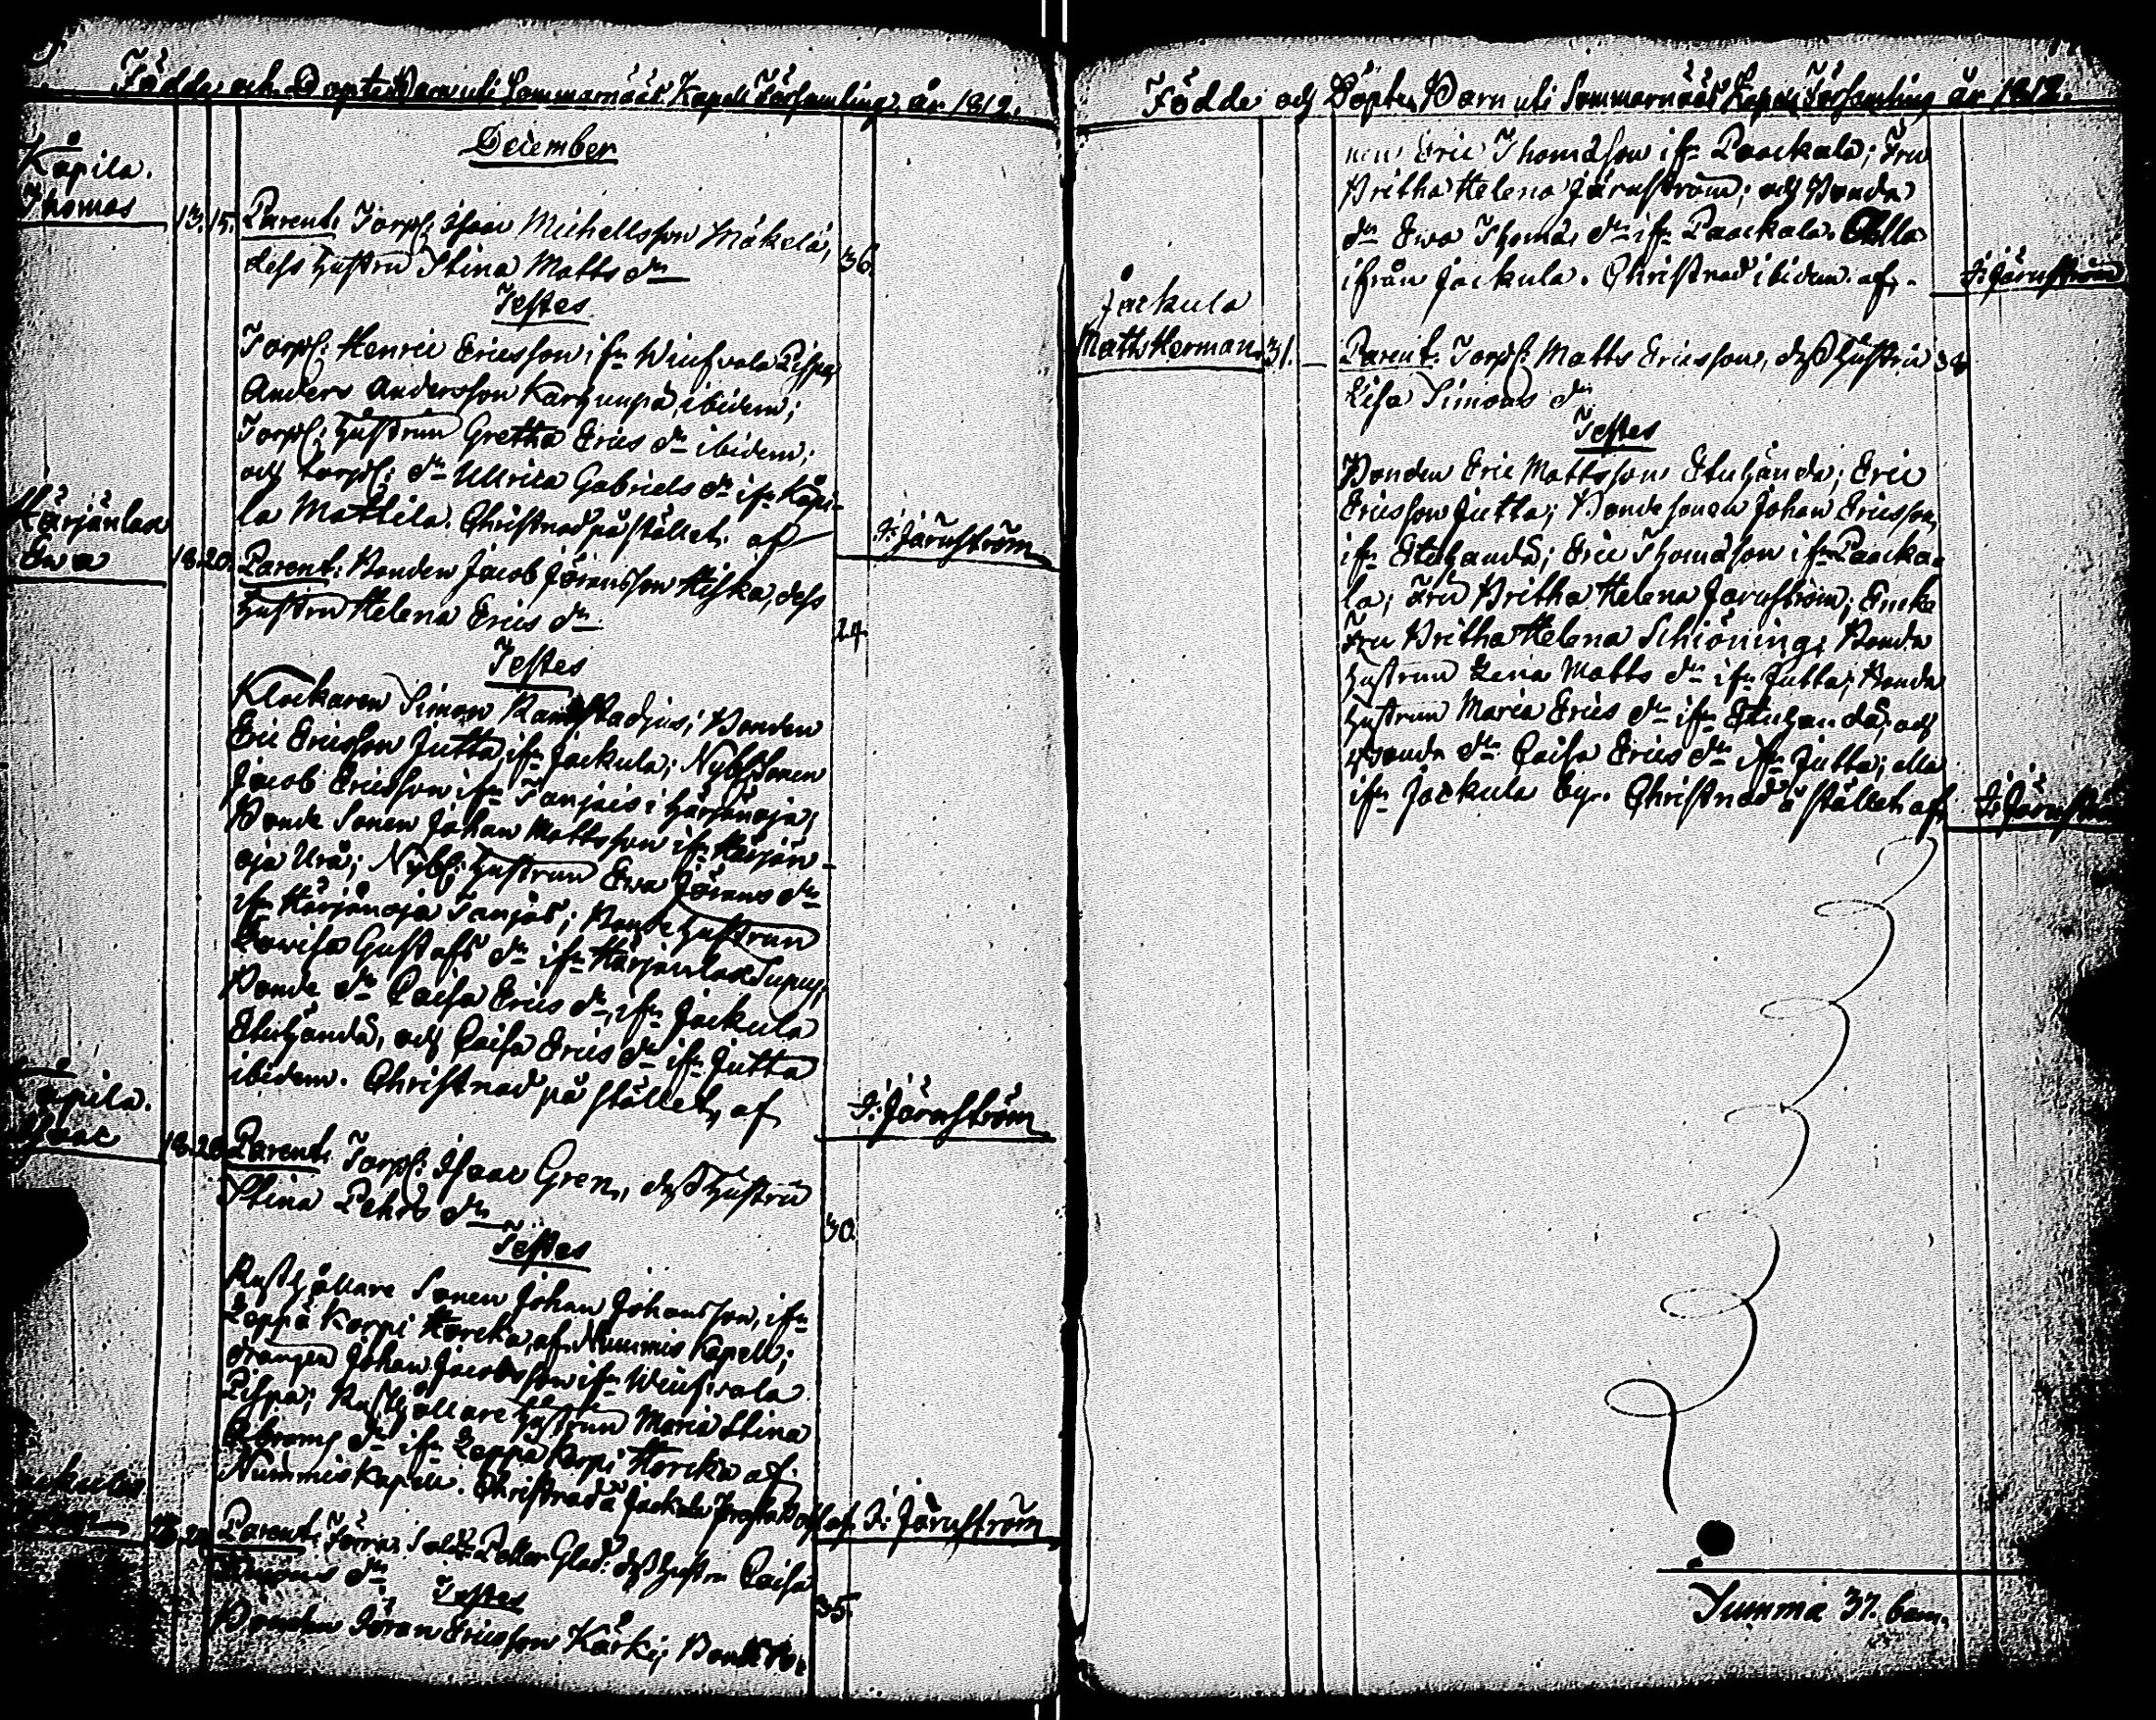 Födde och Döpte Barn uti Sommarnääs Kapell Församling år 1812.
December
Kåpila.
Thomas
13. 15. Parent: Torp: Isaac Michellsson Mäkelä,
dess hustru Stina Matts dr 36.
Testes
Torp: Henric Ericsson ifr Wiufvala Pispa,
Anders Andersson Karhunpä, ibidem;
Torp: hustrun Gretha Erics dr ibidem;
och torp: dr Ullrica Gabriels dr ifr Kåpi-
la Mattila. Christnad på stället. af
I: Järnström
Härjänlax
Ewa
18. 20. Parent: Bonden Jacob Jöransson Hiska, dess
hustru Helena Erics dr
24.
Testes
Klockaren Simon Bonden
Eric Ericsson Jutta, ifr Jackula; Nyb: Sonen
Jacob Ericsson ifr Tanjais i Härjänoja;
Bonde Sonen Johan Mattsson ifr Härjän-
oja Urä; Nyb: hustrun Ewa Jörans dr
ifr Härjänoja Tanjas; Bonde hustrun
Lowisa Gustafs dr ifr Härjänlax
Bonde dr Caisa Erics dr, ifr Jackula
Etuhändä, och Caisa Erics dr ifr Jutta
ibidem. Christnad på stället, af
I: Järnström
Kåpila.
Isaac
18. 20. Parent: Torp: Isaac Gren, dess hustru
Stina Pehrs dr
30.
Testes
Rusthållare Sonen Johan Johansson, ifr
Leppä Korpi Horcka, af Nummis Kapell;
drängen Johan Jacobsson ifr Wiufvala
Pispa; Rusthållare hustrun Maria Stina
Abrams dr ifr Leppä Korpi Horcka af
Nummis Kapell. Christnad å Jackula af I: Järnström
Parent: Förra Sold: Petter Glad: dess hustru Caisa
dr
35.
Testes
Bonden Jöran Ericsson Kärki; Bonde So-
Födde och Döpte Barn uti Sommarnääs Kapell Församling år 1812.
nen Eric Thomasson ifr Paackala; Fru
Britha Helena Järnström; och Bonde
dr Ewa Thomas dr ifr Paackala. Alla
ifrån Jackula. Christnad ibidem af.
I: Järnström
Jackula
Math: Herman
31. Parent: Torp: Matts Ericsson, dess hustru 38
Lisa Simons dr
Testes
Bonden Eric Mattsson Etuhändä; Eric
Ericsson Jutta; Bondesonen Johan Ericsson,
ifr Etuhändä; Eric Thomasson ifr Paacka-
la; Fru Britha Helena Järnström; Encke
Fru Britha Helena Schiöning; Bonde
hustrun Lena Matts dr ifr Jutta; Bonde
hustrun Maria Erics dr ifr Etuhändä, och
Bonde dr Caisa Erics dr ifr Jutta; alla
ifr Jackula by. Christnad å stället af.
I: Järnström
Summa 37. barn.